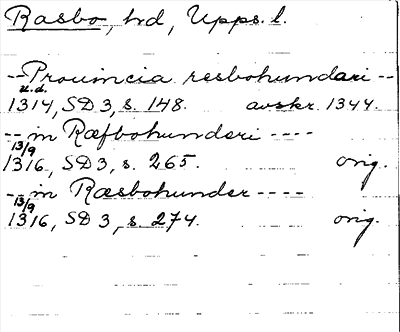 Rasbo, hd, Upps. l.
-- Prouincia resbohundari --
u.d.
1314, SD 3, s. 148. avskr. 1344.
-- in Ræfbohunderi ----
13/9
1316, SD 3, s. 265. orig.
-- in Ræsbohunder ----
13/9
1316, SD 3, s. 274. orig.